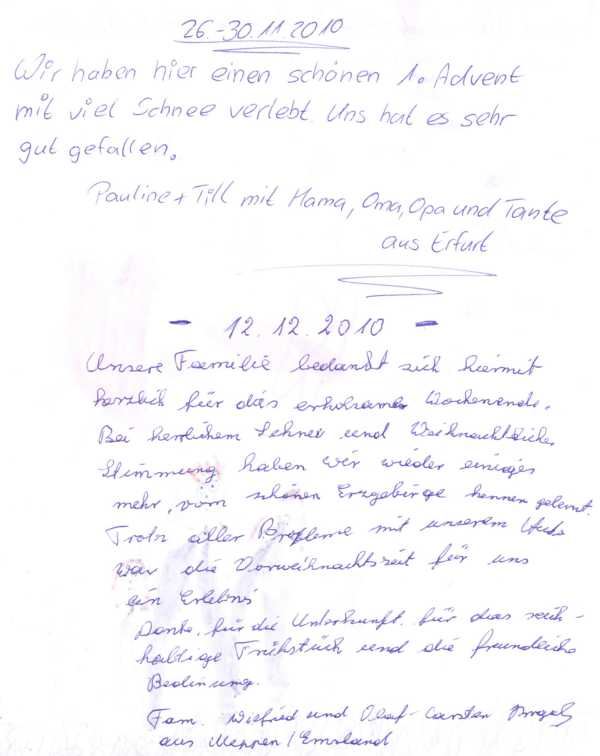 26.-30.11.2010
Wir haben hier einen schönen 1. Advent
mit viel Schnee verlebt. Uns hat es sehr
gut gefallen.
Pauline + Till mit Mama, Oma, Opa und Tante
aus Erfurt
- 12.12.2010 -
Unsere Familie bedankt sich hiermit
herzlich für das erholsame Wochenende.
Bei herrlichem Schnee und Weihnachtlicher
Stimmung haben wir wieder einiges
mehr, vom schönen Erzgebirge kennen gelernt.
Trotz aller Probleme mit unserem
war die Vorweihnachtszeit für uns
ein Erlebnis
Danke, für die Unterkunft für das reich-
haltige Frühstück und die freundliche
Bedinung.
Fam. Wilfried und Olaf-Carsten
aus Meppen / Emsland